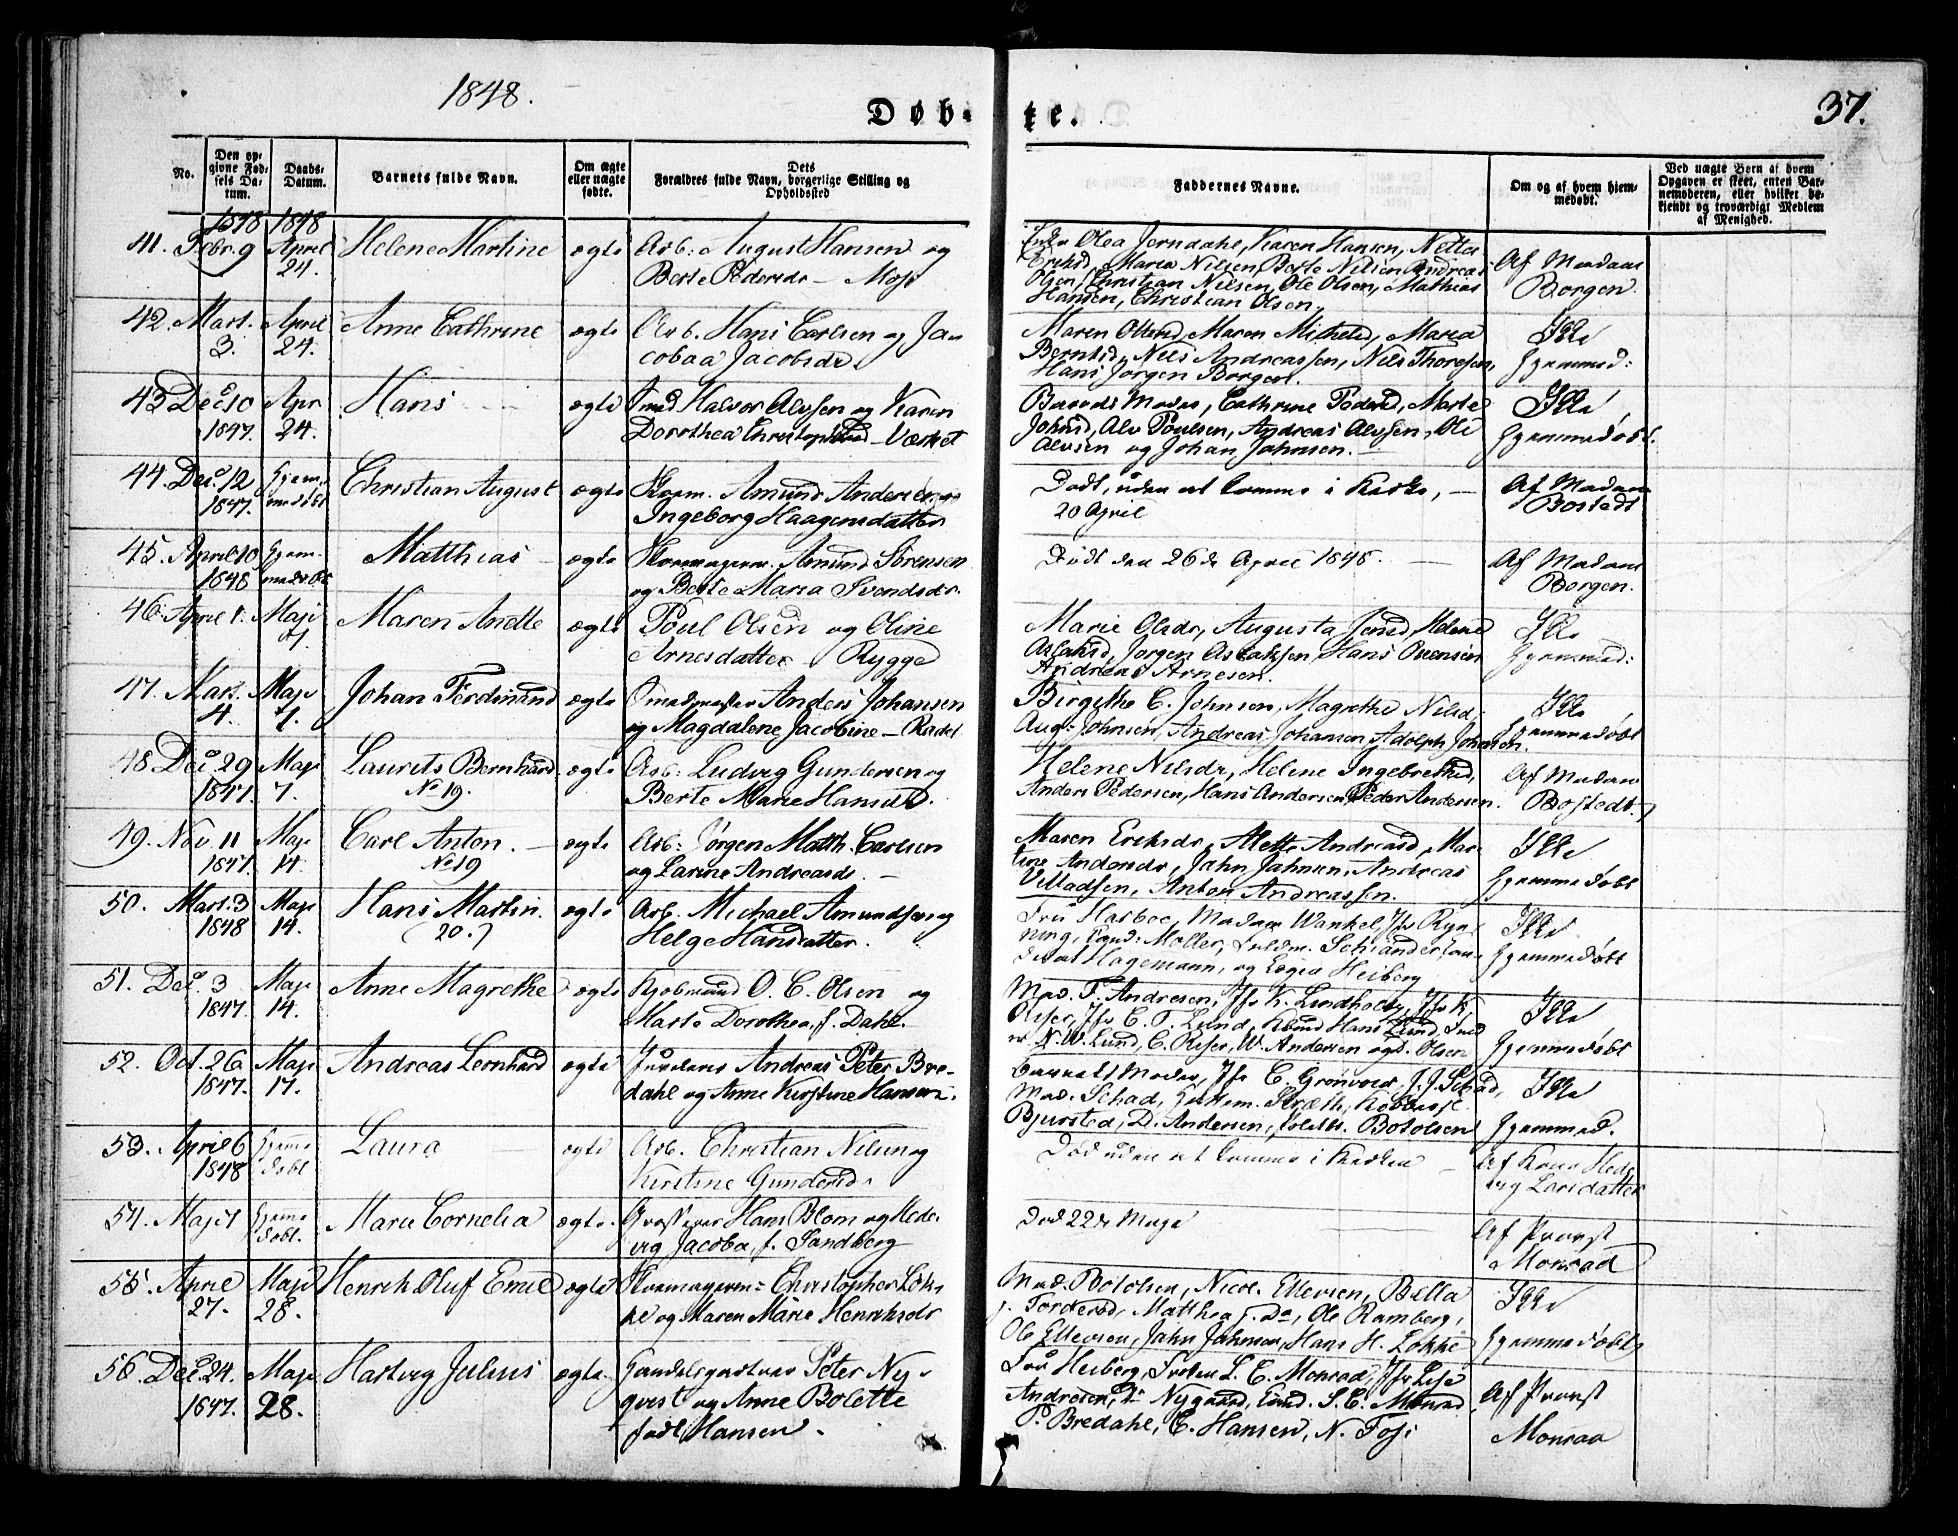 1848.
Døb-
te.
37.
No.
Den op-
givne Fød-
sels Da-
tum.
Daabs-
Datum.
Barnets fulde Navn.
Om ægte
eller uægte
fødte.
Dets
Forældres fulde Navn, borgerlige Stilling og
Opholdssted
Faddernes Navne.
Om og af hvem hjem-
medøbt.
Ved uægte Børn af hvem
Opgaven er skeet, enten Bar-
nemoderen, eller hvilket be-
kjendt og troværdigt Medlem
af Menighed.
1848 1848
41. Febr. 9 April 24. Helene Martine ægte
Arb: August Hansen og
Berte Pedersdr - Moss
Olea Jerndahl, Karen Hansen, Netta
Maria Nilsen, Berte Nilsen Andreas
Olsen, Christian Nilsen, Ole Olsen, Mathias
Hansen, Christian Olsen,
Af Madam
Borgen.
42. Mart. 3. April 24. Anne Cathrine ægte
Arb. Hans Carlsen og Ja-
cobaa Jacobsdr.
Maren Olsend, Maren Maria
Berntsd, Nils Andreassen, Nils Thoresen,
Hans Jørgen Borgen.
Ikke
hjemmed:
43 Dec 10 1847. Apr 24. Hans ægte
Halvor Alvsen og Karen
Dorothea Christophersd - Værket
Barnets Moder, Cathrine Pedersd, Marte
Johnsd, Alv Poulsen, Andreas Alvsen, Ole
Alvsen og Johan Johnsen.
Ikke
hjemmedøbt.
44. Dec. 12 1847. Hjem-
medøbt Christian August ægte
Skom. Amund Andersen og
Ingeborg Haagensdatter
Dødt, uden at komme i Kirke, -
20 April
Af Madam
Bostedt
45. April 10 1848 Hjem-
medøbt Matthias - ægte
Skomagerm. Amund Sörensen
og Berte Maria Svendsdr.
Dødt den 26de April 1848. -
Af Madam
Borgen.
46. April 1. Maji 7. Maren Anette ægte
Poul Olsen og Oline
Arnesdatter - Rygge
Marie Olsdr, Augusta Jensd, Helene
Aslaksd, Jørgen Aslaksen, Hans Svensen
Andreas Arnesen.
Ikke
hjemmed:
47. Mart. 4. Maji 7. Johan Ferdinand ægte
Anders Johansen
og Magdalene Jacobine -
Birgithe C. Johnsen, Magrethe Nilsd,
Aug. Johnsen, Andreas Johansen Adolph Johnsen.
Ikke
hjemmedøbt
48 Dec. 29 1847. Maji 7. Laurits Bernhard
No 19. ægte
Arb: Ludvig Gundersen og
Berte Marie Hansd.
Helene Nilsdr, Helene Ingebretsd,
Anders Pedersen, Hans Andersen, Peder Andersen.
Af Madam
Bostedt.
49. Nov. 11 1847. Maji 14. Carl Anton. -
No 19 ægte
Arb: Jørgen Matth. Carlsen
og Larine Andreasd. -
Maren Eriksdr, Alette Andreasd, Mar-
tine Andersdr, Jahn Jahnsen, Andreas
Villadsen, Anton Andreassen.
Ikke
hjemmedøbt
50. Mart. 3 1848 Maji 14. Hans Martin.
(20.) ægte
Arb. Michael Amundsen og
Helge Hansdatter.
Fru Harboe, Madam Wankel, Jfr Ryn-
ning, Cand: Møller, Schiander,
Hagemann, og Heiberg
Ikke
hjemmedøbt
51. Dec. 3 1847. Maji 14. Anne Magrethe ægte
Kjøbmand O. C. Olsen og
Marte Dorothea, f. Dahl.
Mad. F. Andresen, Jfr K. Lindholm, Jfr K.
Riser, Jfr C. F. Lund, Kbmd Hans Lund,
N. W. Lund, C. Riser, W. Andersen og Olsen
Ikke
hjemmedøbt
52. Oct. 26 1847. Maji 17. Andreas Leonhard ægte
Andreas Peter Bre-
dahl og Anne Kirstine Hansen.
Barnets Moder, Jfr C. Grønvold, J. J. Schad,
Mad. Schad,
Bjursted, D. Andersen, Botolsen
Ikke
hjemmed.
53. April 6 1848 Hjemme-
døbt Laura - ægte
Arb. Christian Nilsen og
Kirstine Gundersd.
Død uden at komme i Kirken
Af Kone Hed-
vig Larsdatter
54. Maji 1 Hjemme-
døbt. Marie Cornelia ægte.
Grosserer Hans Blom og Hede-
vig Jacoba, f. Sandberg
Død 22de Maji
Af Provst
Monrad
55. April 27. Maji 28. Henrik Oluf Emil ægte
Skomagerm: Christopher Løk-
ke og Maren Marie Henriksdr
Mad. Botolsen, Nicol. Ellevsen, Bella
Torders, Matthea f. Do, Ole Ramberg,
Ole Ellevsen, Jahn Jahnsen, Hans H. Løkke
Ikke
hjemmedøbt
56. Dec. 24. 1847. Maji 28. Hartvig Julius ægte.
Peter Ny-
qvist og Anne Bolette
født Hansen.
Fru Heiberg, Frøken L. C. Monrad, Jfr Lise
Andresen, Nygaard, Cand. S. C. Monrad,
P. Bredahl, C. Hansen, N. Foss
Af Provst
Monrad